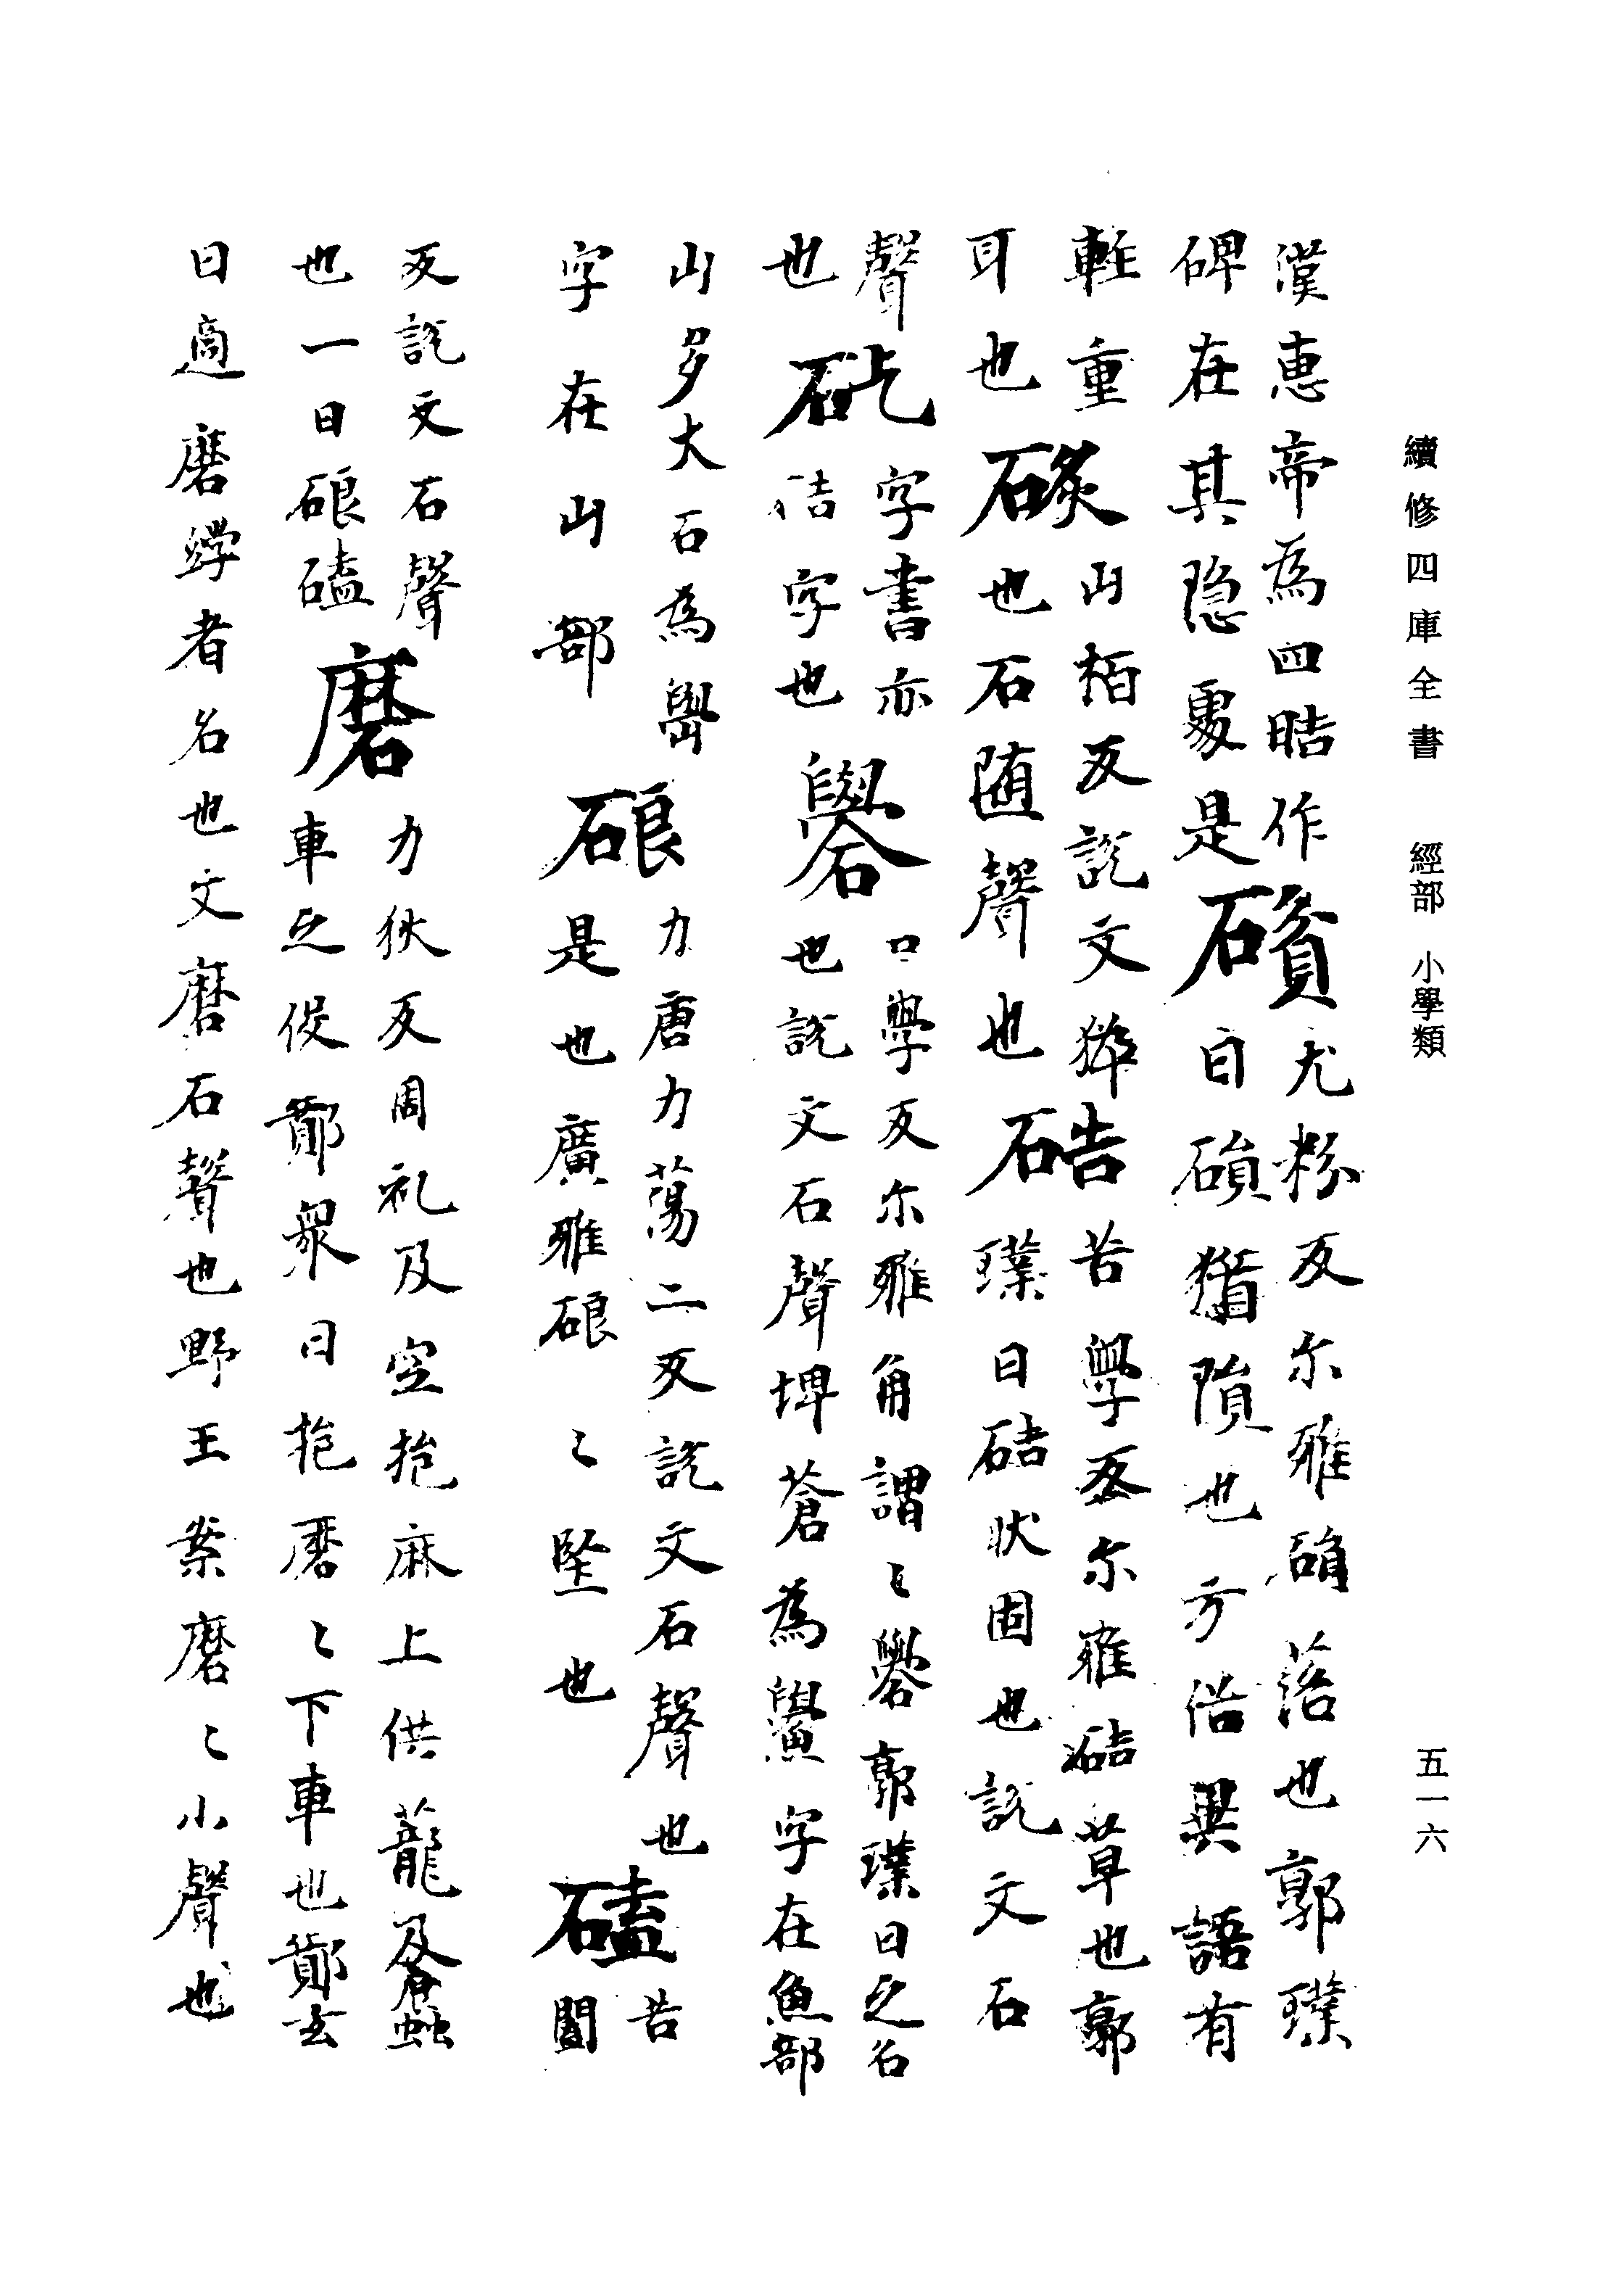 續修四庫全書 經部 小學類
五一六
漢惠帝為四晧作
碑在其隠處是
磒
尤粉反尓雅磒落也郭璞
曰磒猶隕也方俗異語有
輊重
耳也
山栢反説文猝
也石随聲也
硞
苦學反尓雅硞草也郭
璞曰硞状固也説文石
聲
也
矻
字書亦
硞字也
礐
口學反尓雅角謂〻礐郭璞曰之名
也説文石聲埤蒼為鱟字在魚部
山多大石為嶨
字在山部
硠
力唐力蕩二反説文石聲也
是也廣雅硠〻堅也
磕
苦
闔
反説文石聲
也一曰硠磕
磿
力狄反周礼及窆抱麻上供蘢及蜃
車之役鄭衆曰抱磿〻下車也鄭玄
曰適磿綍者名也文磿石聲也野王案磿〻小聲也